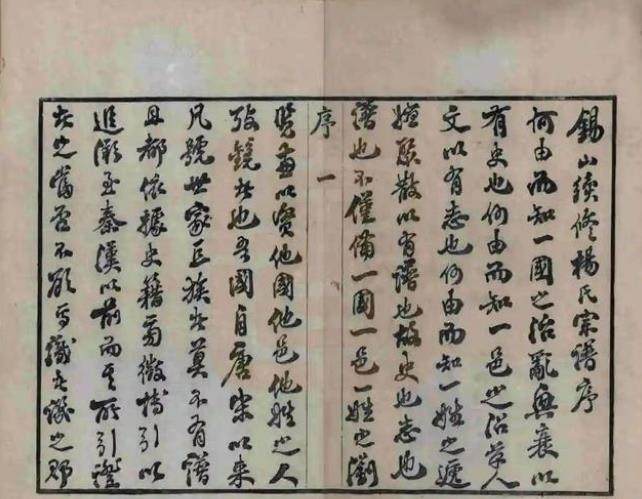 錫山續修楊氏宗譜序
何由而知一國之治亂興衰以
有史也何由而知一邑之沿革人
文以有志也何由而知一姓之遞
嬗聚散以有譜也故史也志也
譜也不僅備一國一邑一姓之瀏
序 一
覽兼以資他國他邑他姓之人
攷鏡者也吾國自唐宋以來
凡號世家巨族者莫不有譜
且都依據史籍旁徵博引以
追溯至秦漢以前而其所引證
者之當否不顧焉識者譏之